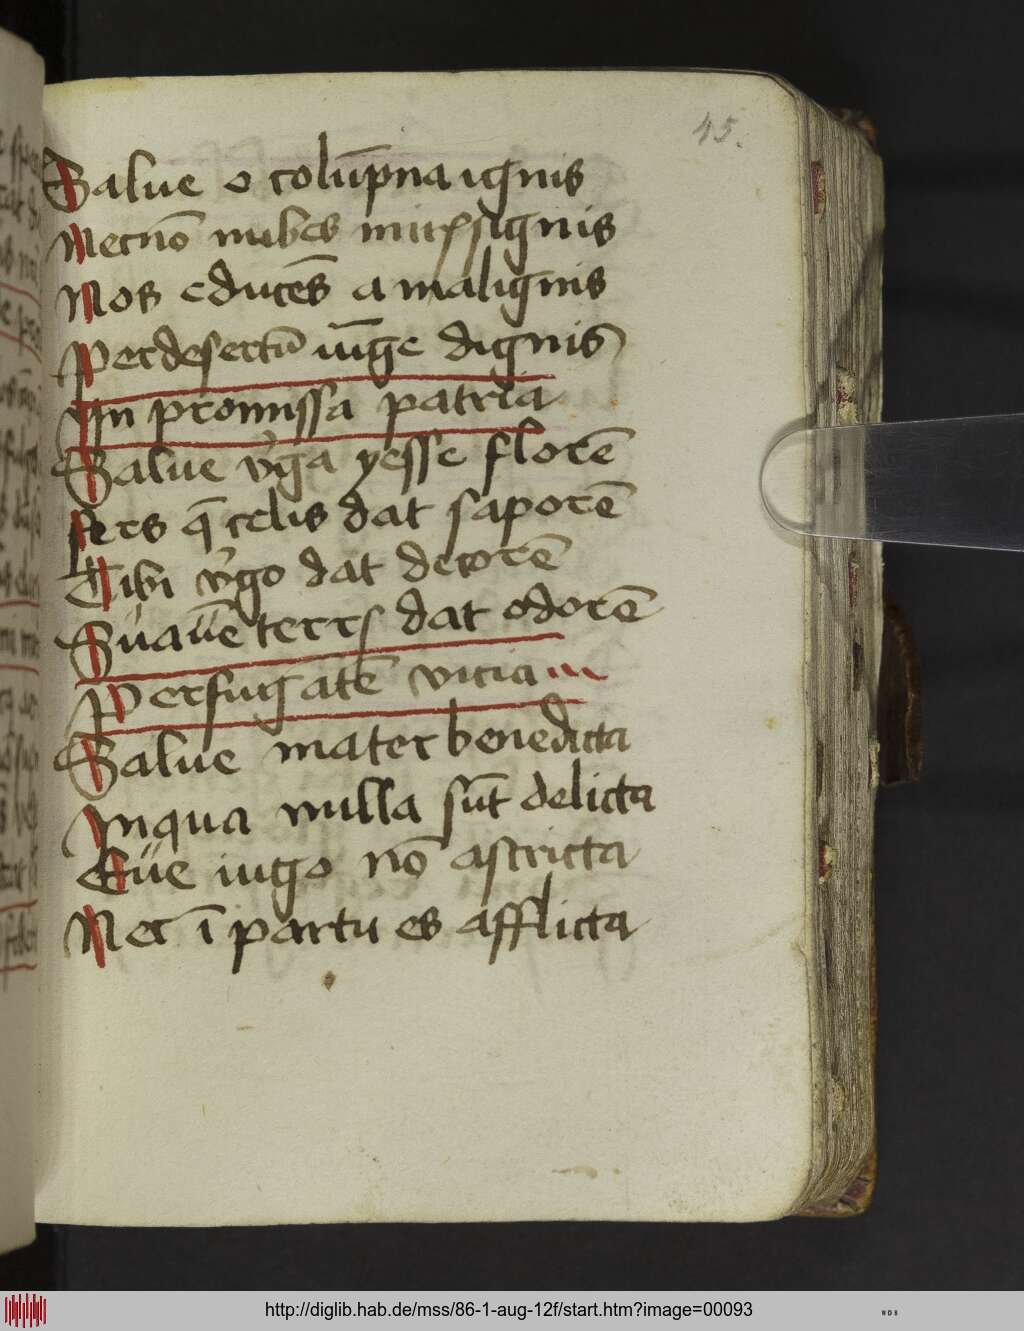 45.
Salue o colūpna ignis
Necnō nubes miri signis
Nos educēs a malignis
Per desertū iūge dignis
In promissa patria
Salue v̓ga yesse florē
Fers q̄ celis dat saporē
Tibi v̓go dat decorē
Suauē terrs dat odorē
Per fugatē vicia
Salue mater benedicta
In qua nulla sūt delicta
Eue iugo nō astricta
Nec ī partu es afflicta
http://diglib.hab.de/mss/86-1-aug-12f/start.htm?image=00093